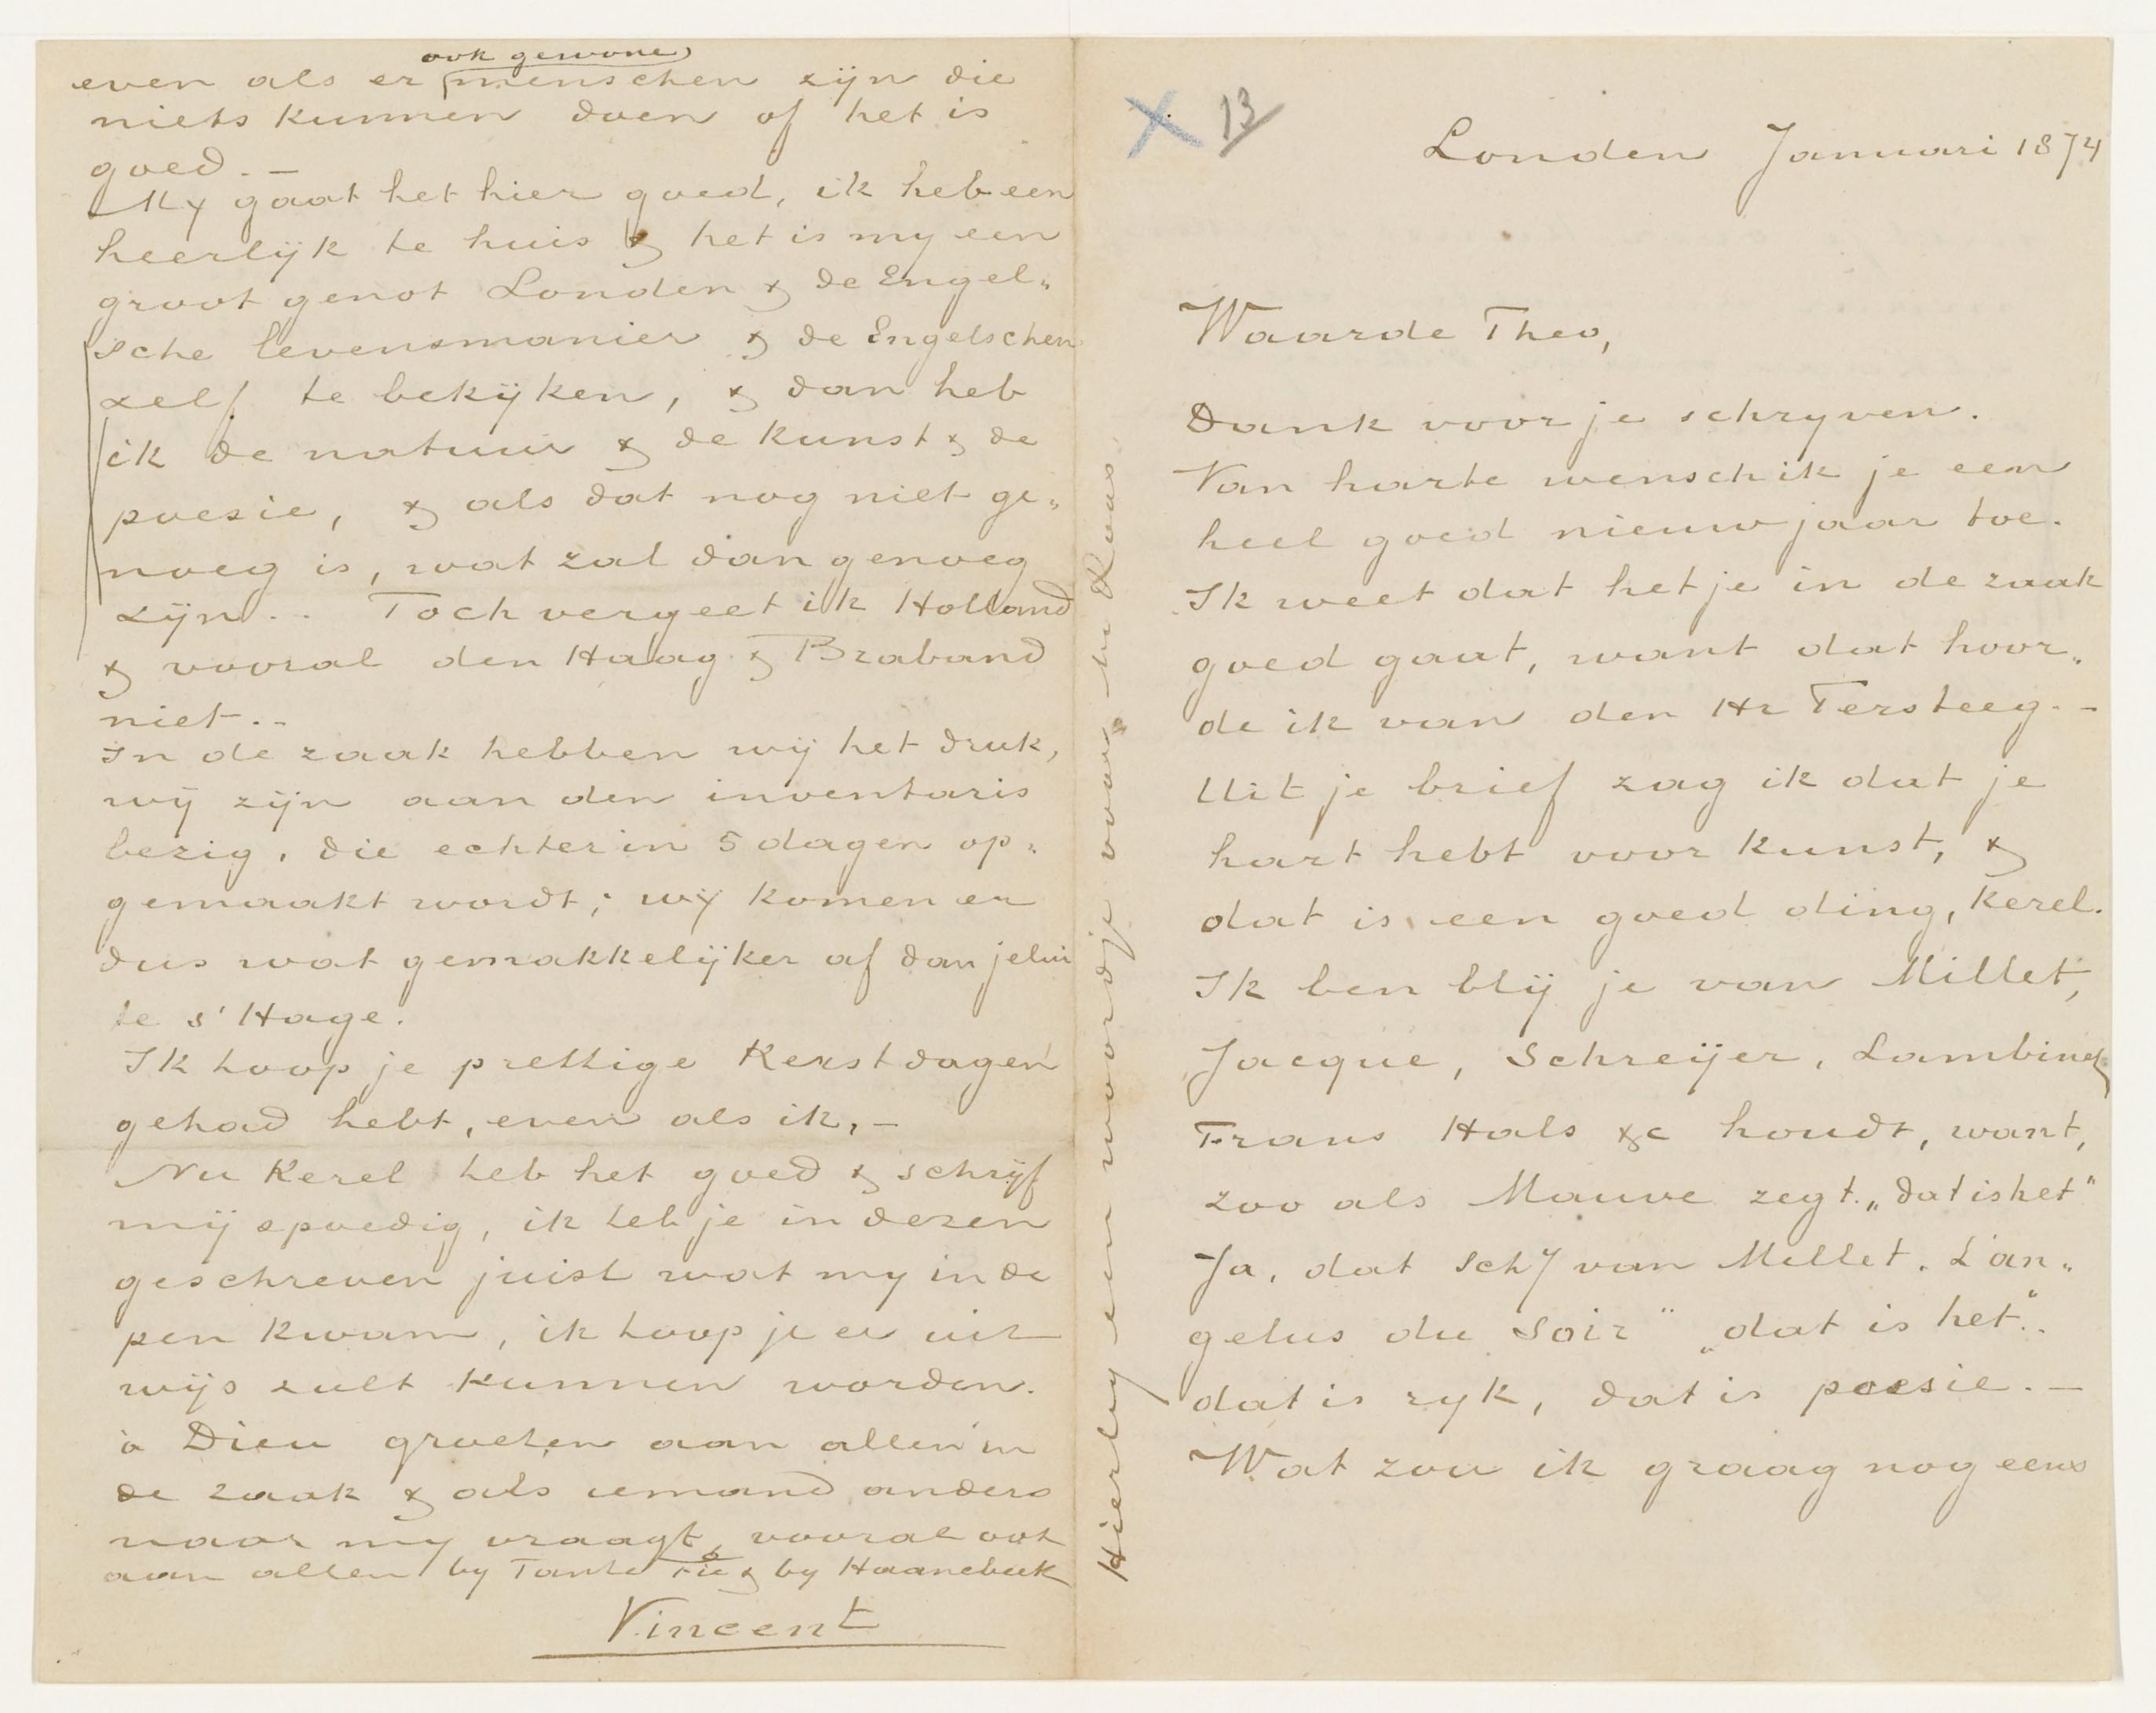 13
Londen Januari 1874
Waarde Theo,
Dank voor je schryven.
Van harte wensch ik je een
heel goed nieuwjaar toe.
Ik weet dat het je in de zaak
goed gaat, want dat hoor„
de ik van den Hr Tersteeg. –
Uit je brief zag ik dat je
hart hebt voor kunst, &
dat is een goed ding, kerel.
Ik ben blij je van Millet,
Jacque, Schreijer, Lambinet,
Frans Hals &c houdt, want,
zoo als Mauve zegt. „dat is het"
Ja, dat schy van Millet. L'an„
gelus du soir" „dat is het".
dat is ryk, dat is poesie. –
Wat zou ik graag nog eens
Hierby een woordje voor M. Roos
even als er ook gewone menschen zijn die
niets kunnen doen of het is
goed. –
My gaat het hier goed, ik heb een
heerlijk te huis & het is my een
groot genot Londen & de Engel„
sche levensmanier & de Engelschen
zelf te bekijken, & dan heb
ik de natuur & de kunst & de
poesie, & als dat nog niet ge„
noeg is, wat zal dan genoeg
zijn.. Toch vergeet ik Holland
& vooral den Haag & Braband
niet..
In de zaak hebben wij het druk,
wij zijn aan den inventaris
bezig, die echter in 5 dagen op„
gemaakt wordt; wij komen er
dus wat gemakkelijker af dan jelui
te s'Hage.
Ik hoop je prettige Kerstdagen
gehad hebt, even als ik, –
Nu Kerel heb het goed & schrijf
mij spoedig, ik heb je in dezen
geschreven juist wat my in de
pen kwam, ik hoop je er uit
wijs zult kunnen worden.
à Dieu groeten aan allen in
de zaak & als iemand anders
naar my vraagt, vooral ook
aan allen by Tante Fie & by Haanebeek
Vincent